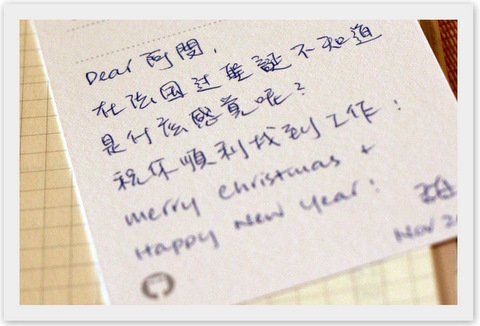 Dear 阿閔,
在法国过聖誕不知道
是什么感覚呢?
祝你順利找到工作!
merry christmas +
Happy New Year!
Nov